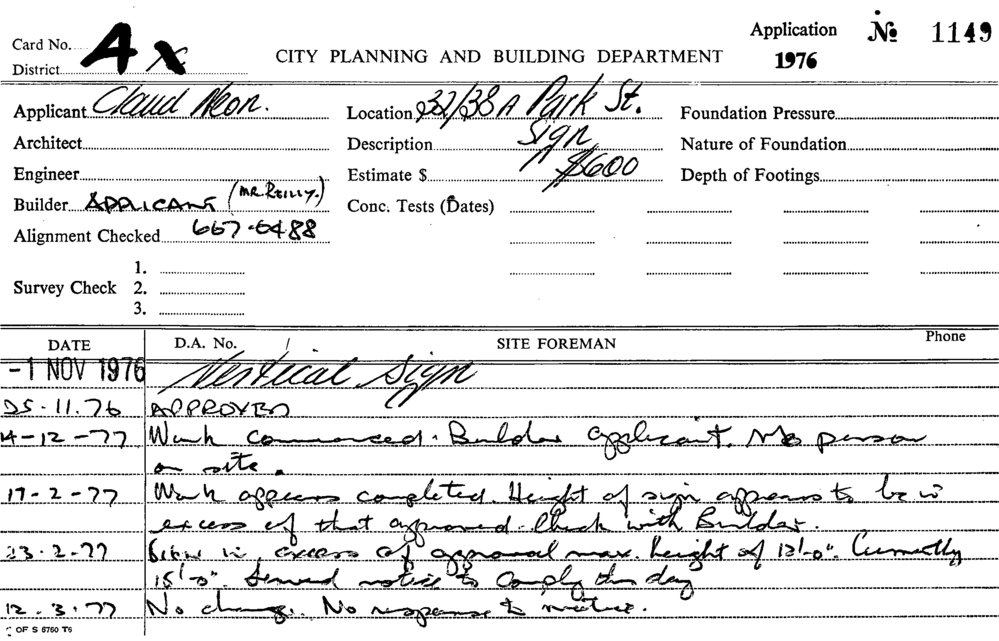 Application № 1149
Card No. 4 x
CITY PLANNING AND BUILDING DEPARTMENT
District 1976
Applicant Claud Neon. Location 32/38A Park St. Foundation Pressure
Architect Description Sign Nature of Foundation
Engineer Estimate $ $600 Depth of Footings
Builder APPLICANT (MR. REILLY.) Conc. Tests (Dates)
Alignment Checked 667-6488
1.
Survey Check 2.
3.
DATE D.A. No. SITE FOREMAN Phone
-1 NOV 1976 Vertical Sign
25.11.76 APPROVED
14-12-77 Work commenced. Builder applicant. No person
on site.
17-2-77 Work appears completed. Height of sign appears to be in
excess of that approved. Check with Builder.
23.2.77 in excess of approval max. height of 12'-0". Currently
15'-0". Served notice to comply this day
12.3.77 No change. No response to notice.
OF S 6760 T6